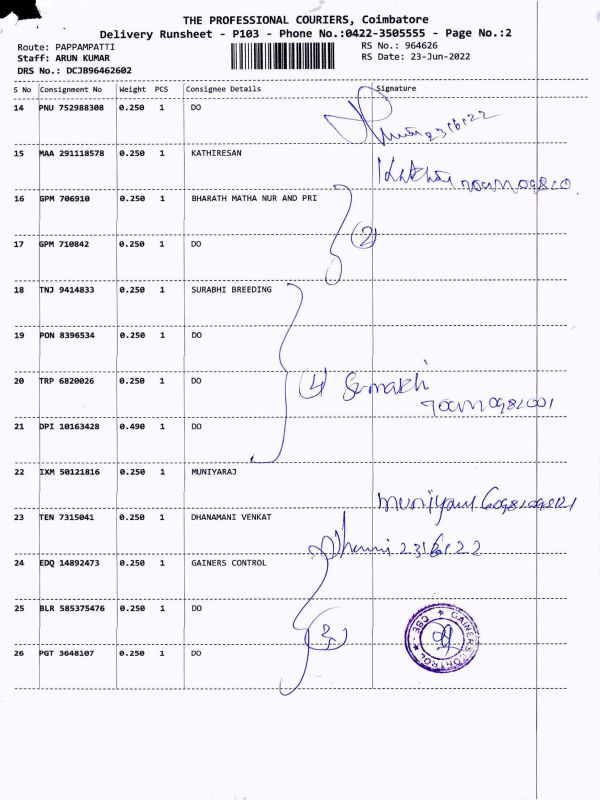 THE PROFESSIONAL COURIERS, Coimbatore
Delivery Runsheet - P103 - Phone No.:0422-3505555 - Page No.:2
Route: PAPPAMPATTI
Staff: ARUN KUMAR
DRS No.: DCJB96462602
RS No.: 964626
RS Date: 23-Jun-2022
S No Consignment No Weight PCS Consignee Details Signature
14 PNU 752988308 0.250 1 DO
23/6/22
15 MAA 291118578 0.250 1 KATHIRESAN
16 GPM 706910 0.250 1 BHARATH MATHA NUR AND PRI
(2)
17 GPM 710842 0.250 1 DO
18 TNJ 9414833 0.250 1 SURABHI BREEDING
19 PON 8396534 0.250 1 DO
20 TRP 6820026 0.250 1 DO
(4)
21 DPI 10163428 0.490 1 DO
22 IXM 50121816 0.250 1 MUNIYARAJ
23 TEN 7315041 0.250 1 DHANAMANI VENKAT
23/6/22
24 EDQ 14892473 0.250 1 GAINERS CONTROL
25 BLR 585375476 0.250 1 DO
(3)
GAINERS CONTROL ★ CBE ★
26 PGT 3648107 0.250 1 DO